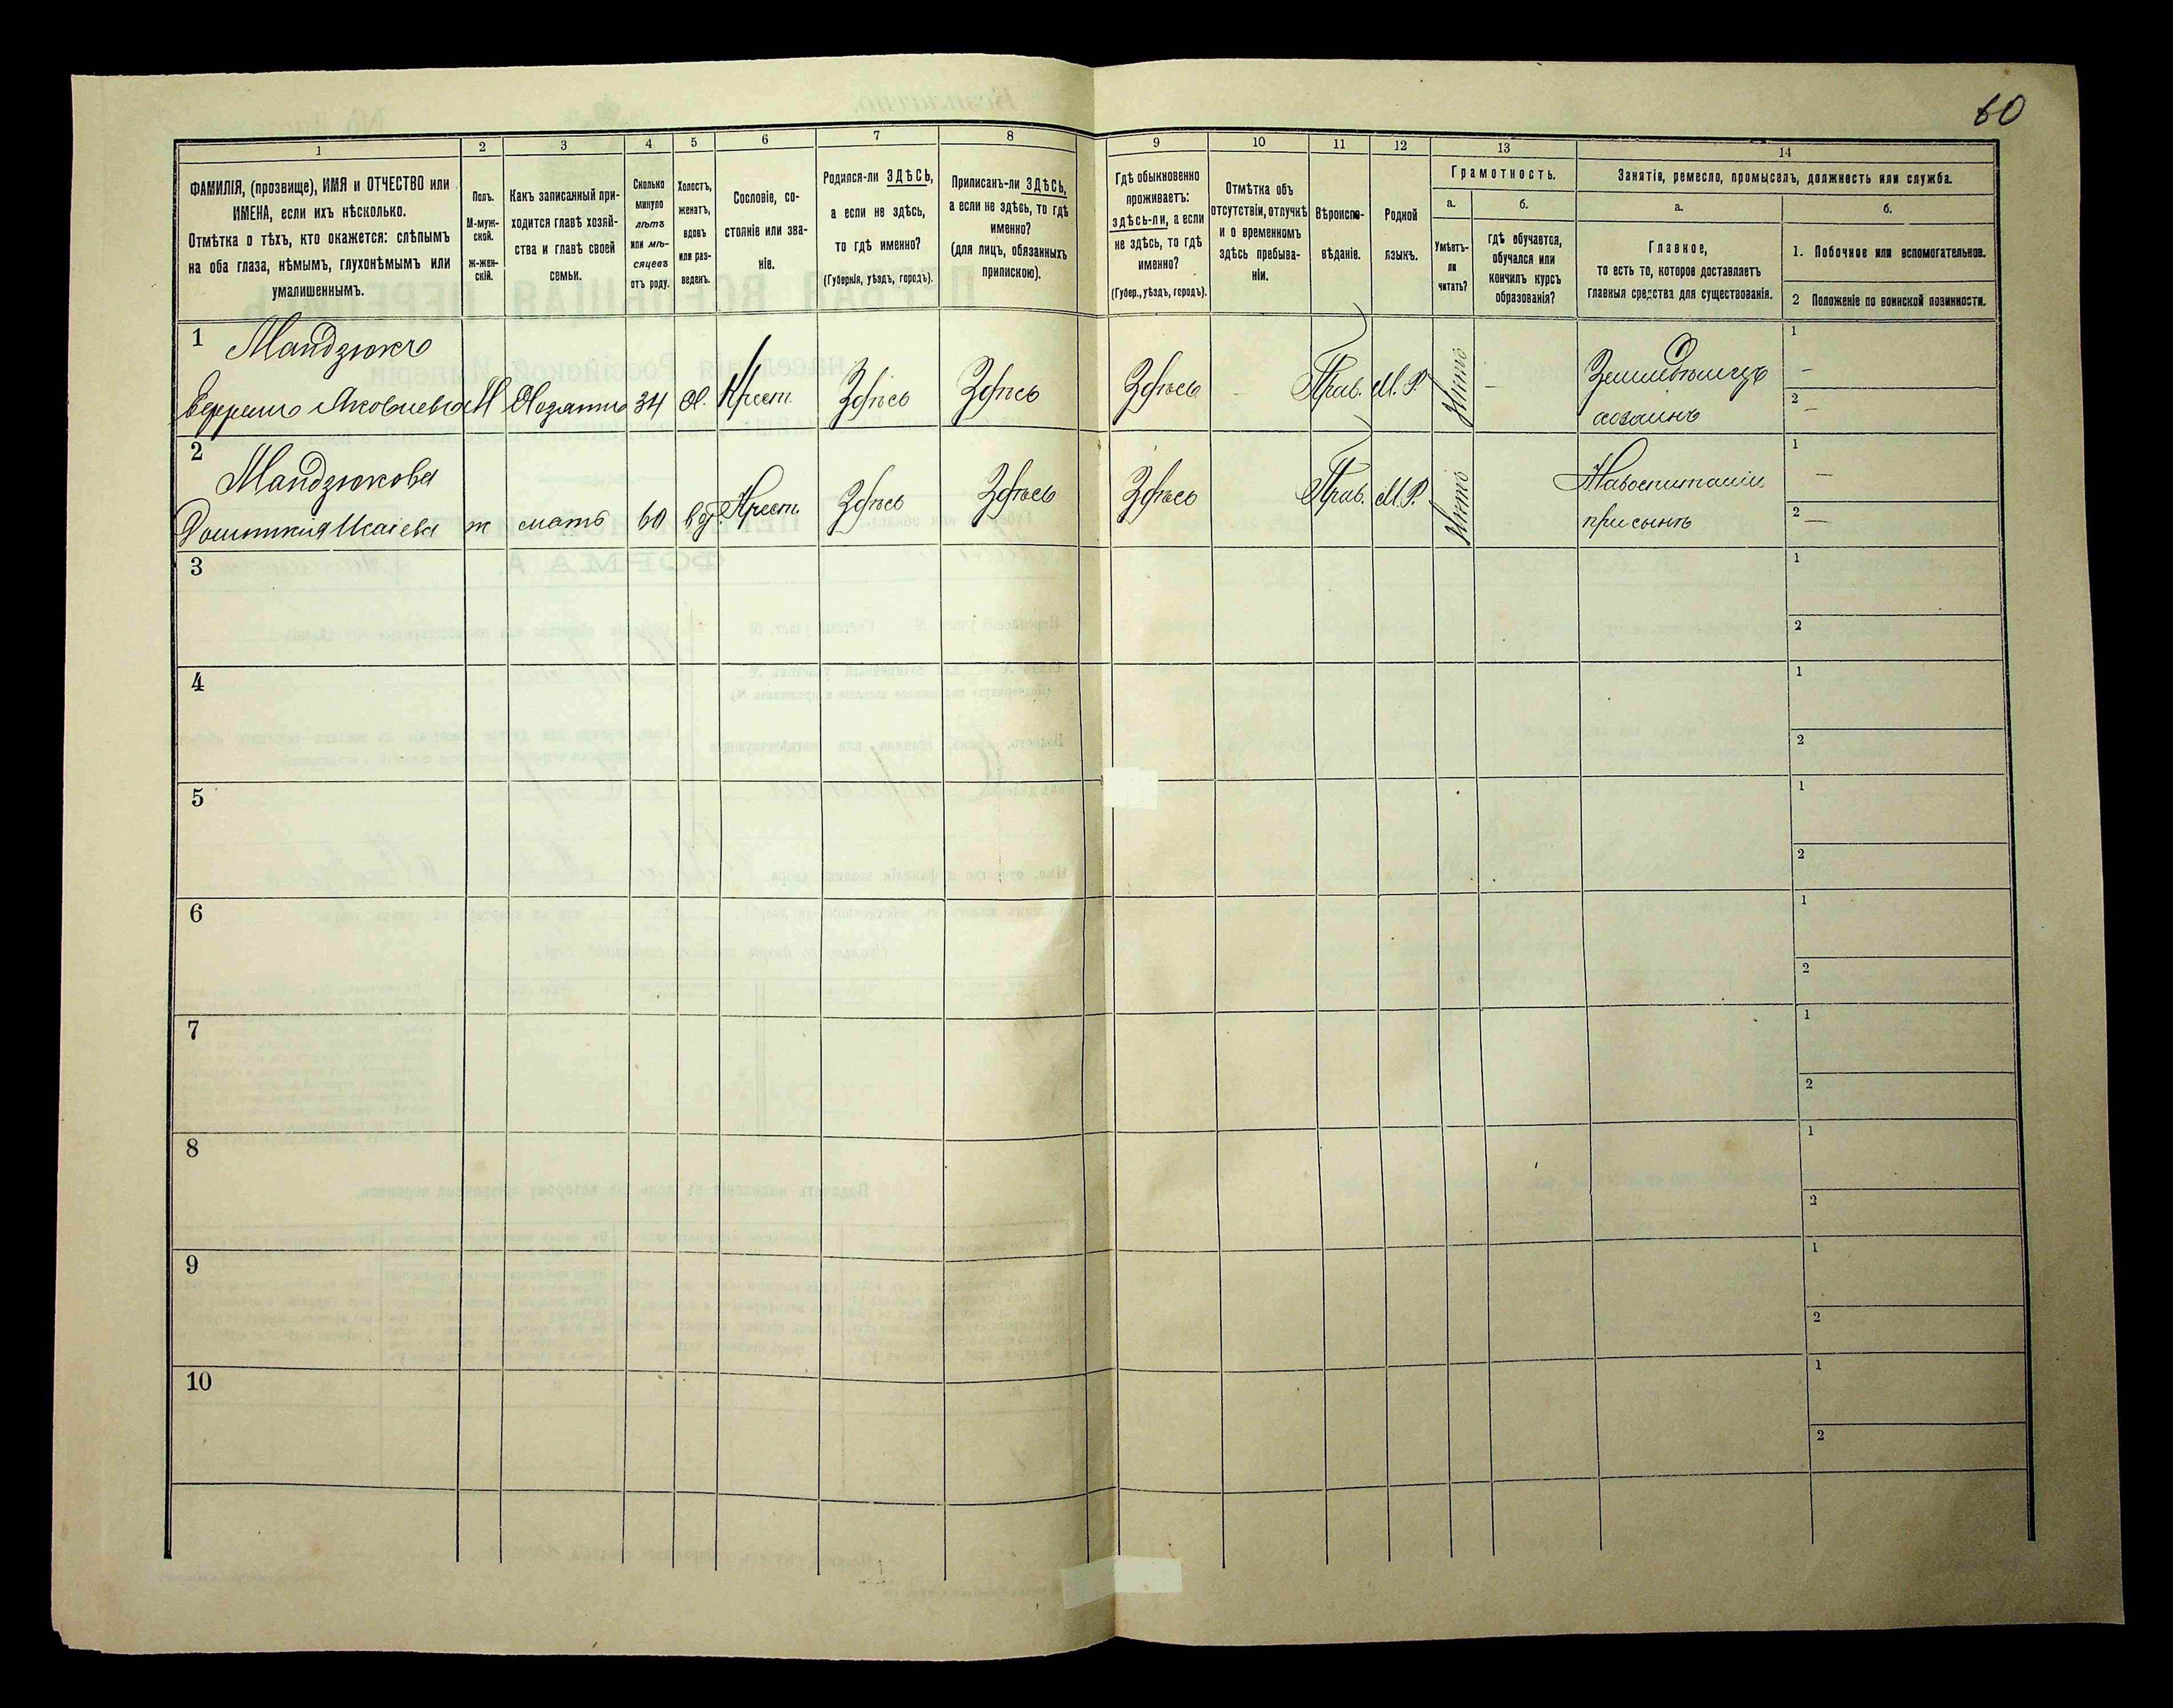 60
1 2 3 4 5 6 7 8 9 10 11 12 13 14
ФАМИЛІЯ, (прозвище), ИМЯ и ОТЧЕСТВО или
ИМЕНА, если ихъ нѣсколько.
Отмѣтка о тѣхъ, кто окажется: слѣпымъ
на оба глаза, нѣмымъ, глухонѣмымъ или
умалишеннымъ.
Полъ.
М-муж-
ской.
Ж-жен-
скій.
Какъ записанный при-
ходится главѣ хозяй-
ства и главѣ своей
семьи.
Сколько
минуло
лѣтъ
или мѣ-
сяцевъ
отъ роду.
Холостъ,
женатъ,
вдовъ
или раз-
веденъ.
Сословіе, со-
стояніе или зва-
ніе.
Родился-ли ЗДѢСЬ,
а если не здѣсь,
то гдѣ именно?
(Губернія, уѣздъ, городъ).
Приписанъ-ли ЗДѢСЬ,
а если не здѣсь, то гдѣ
именно?
(для лицъ, обязанныхъ
припискою).
Гдѣ обыкновенно
проживаетъ:
здѣсь-ли, а если
не здѣсь, то гдѣ
именно?
(Губер., уѣздъ, городъ).
Отмѣтка объ
отсутствіи, отлучкѣ
и о временномъ
здѣсь пребыва-
ніи.
Вѣроиспо-
вѣданіе.
Родной
языкъ.
Грамотность.
а.
Умѣетъ-
ли
читать?
б.
гдѣ обучается,
обучался или
кончилъ курсъ
образованія?
Занятія, ремесло, промыселъ, должность или служба.
а.
Главное,
то есть то, которое доставляетъ
главныя средства для существованія.
б.
1. Побочное или вспомогательное.
2 Положеніе по воинской повинности.
1 Мандзюкъ
Яковлевъ М Хозяинъ 34 Х. Крест. Здѣсь Здѣсь Здѣсь Прав. М.Р. Нѣтъ — Земледѣлецъ
хозяинъ
1 —
2 —
2 Мандзюкова
ж мать 60 вд. Крест. Здѣсь Здѣсь Здѣсь Прав. М.Р. Нѣтъ На воспитаніи
при сынѣ
1 —
2 —
3 1
2
4 1
2
5 1
2
6 1
2
7 1
2
8 1
2
9 1
2
10 1
2